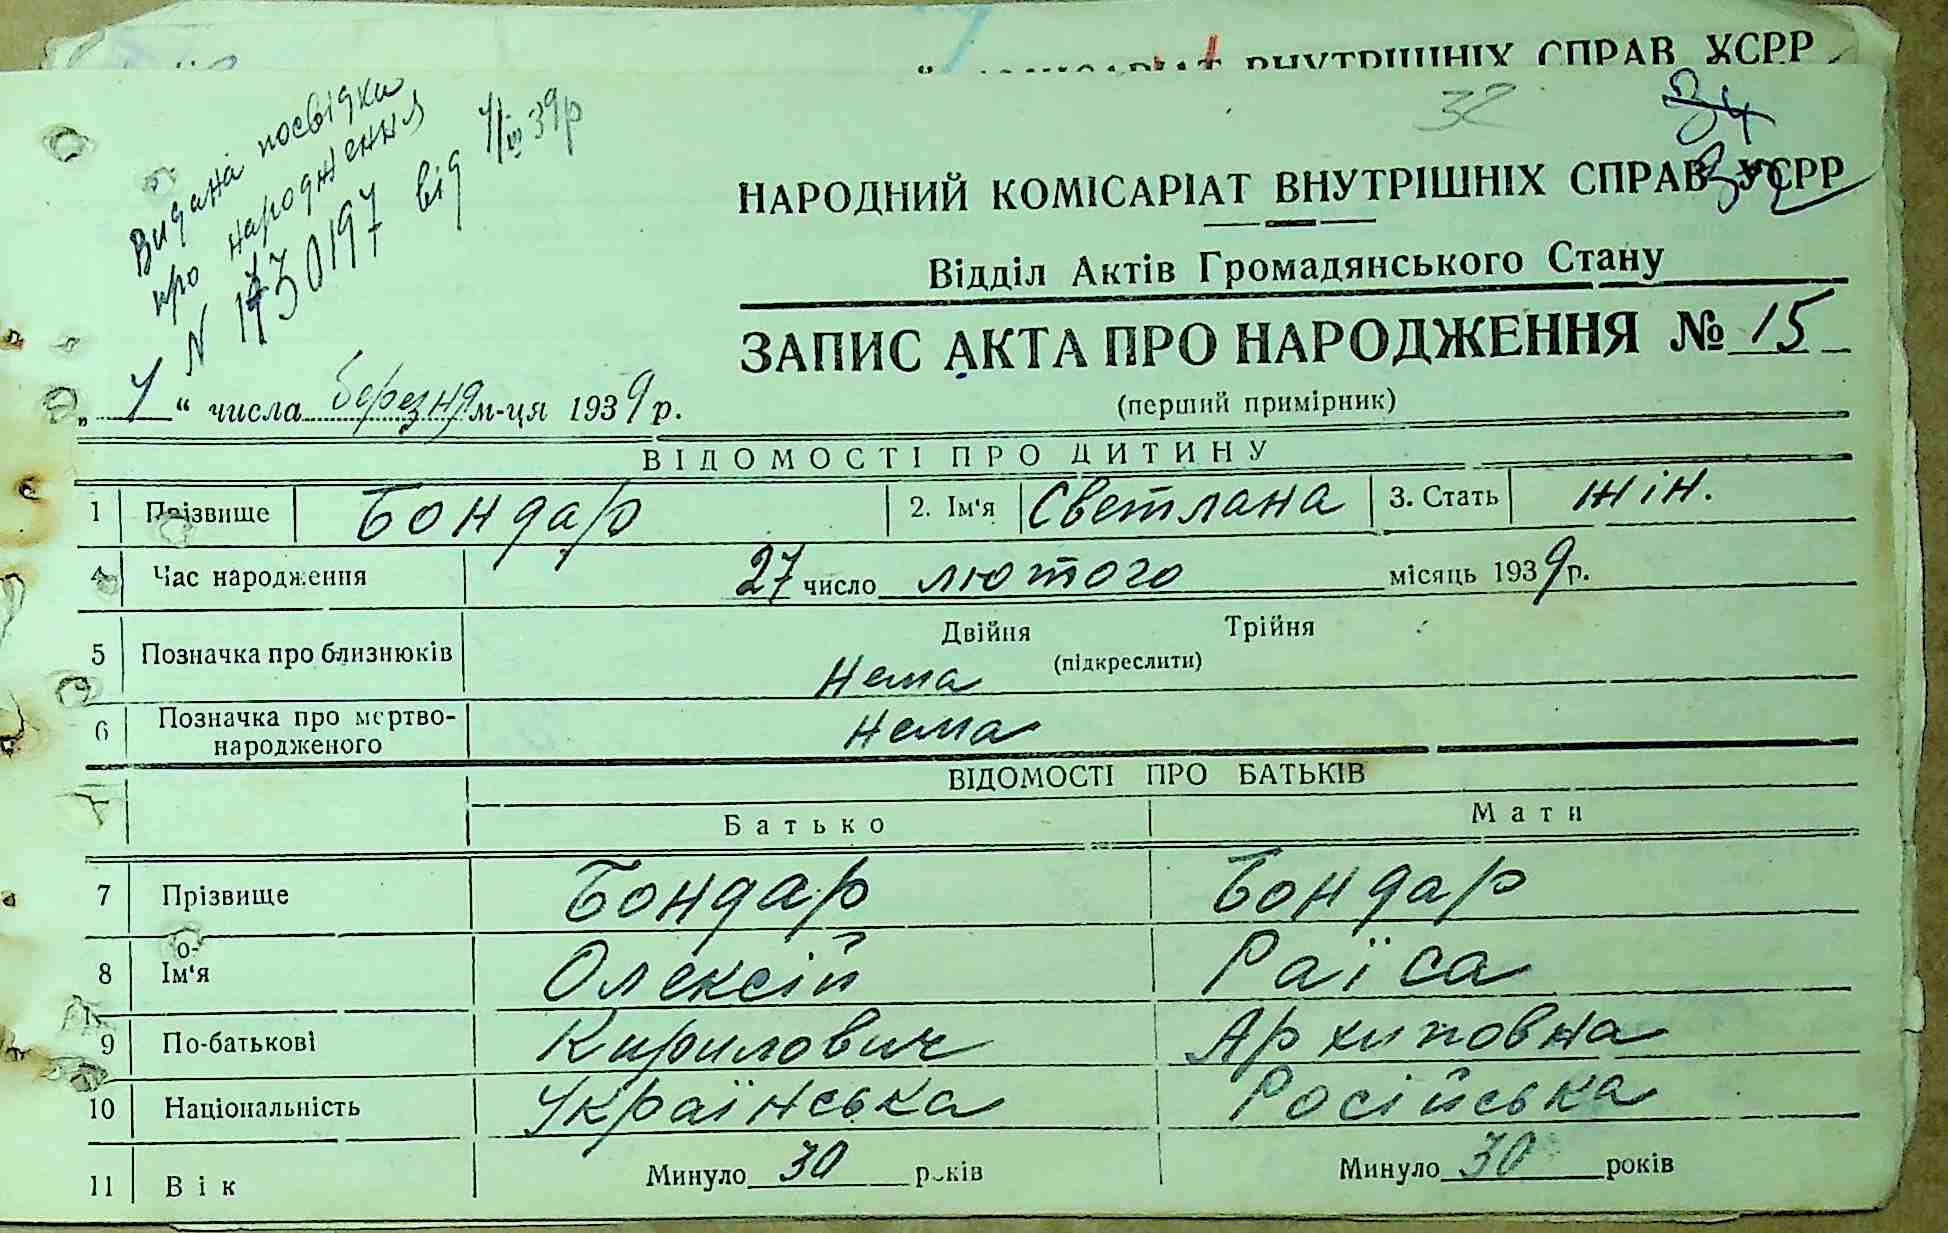 ВНУТРІШНІХ СПРАВ УСРР
32
34
Видана посвідка
про народження
N 1730197 від 1/III 39р
НАРОДНИЙ КОМІСАРІАТ ВНУТРІШНІХ СПРАВ УСРР
Відділ Актів Громадянського Стану
ЗАПИС АКТА ПРО НАРОДЖЕННЯ № 15
„1“ числа березня м-ця 1939 р.
(перший примірник)
ВІДОМОСТІ ПРО ДИТИНУ
1 Прізвище Бондар 2. Ім'я Светлана 3. Стать жін.
4 Час народження 27 число лютого місяць 1939 р.
Двійня Трійня
5 Позначка про близнюків (підкреслити)
Нема
6 Позначка про мертво-
народженого нема
ВІДОМОСТІ ПРО БАТЬКІВ
Батько Мати
7 Прізвище Бондар Бондар
8 Ім'я Олексій Раїса
9 По-батькові Кирилович Архиповна
10 Національність Українська Російська
11 Вік Минуло 30 років Минуло 30 років